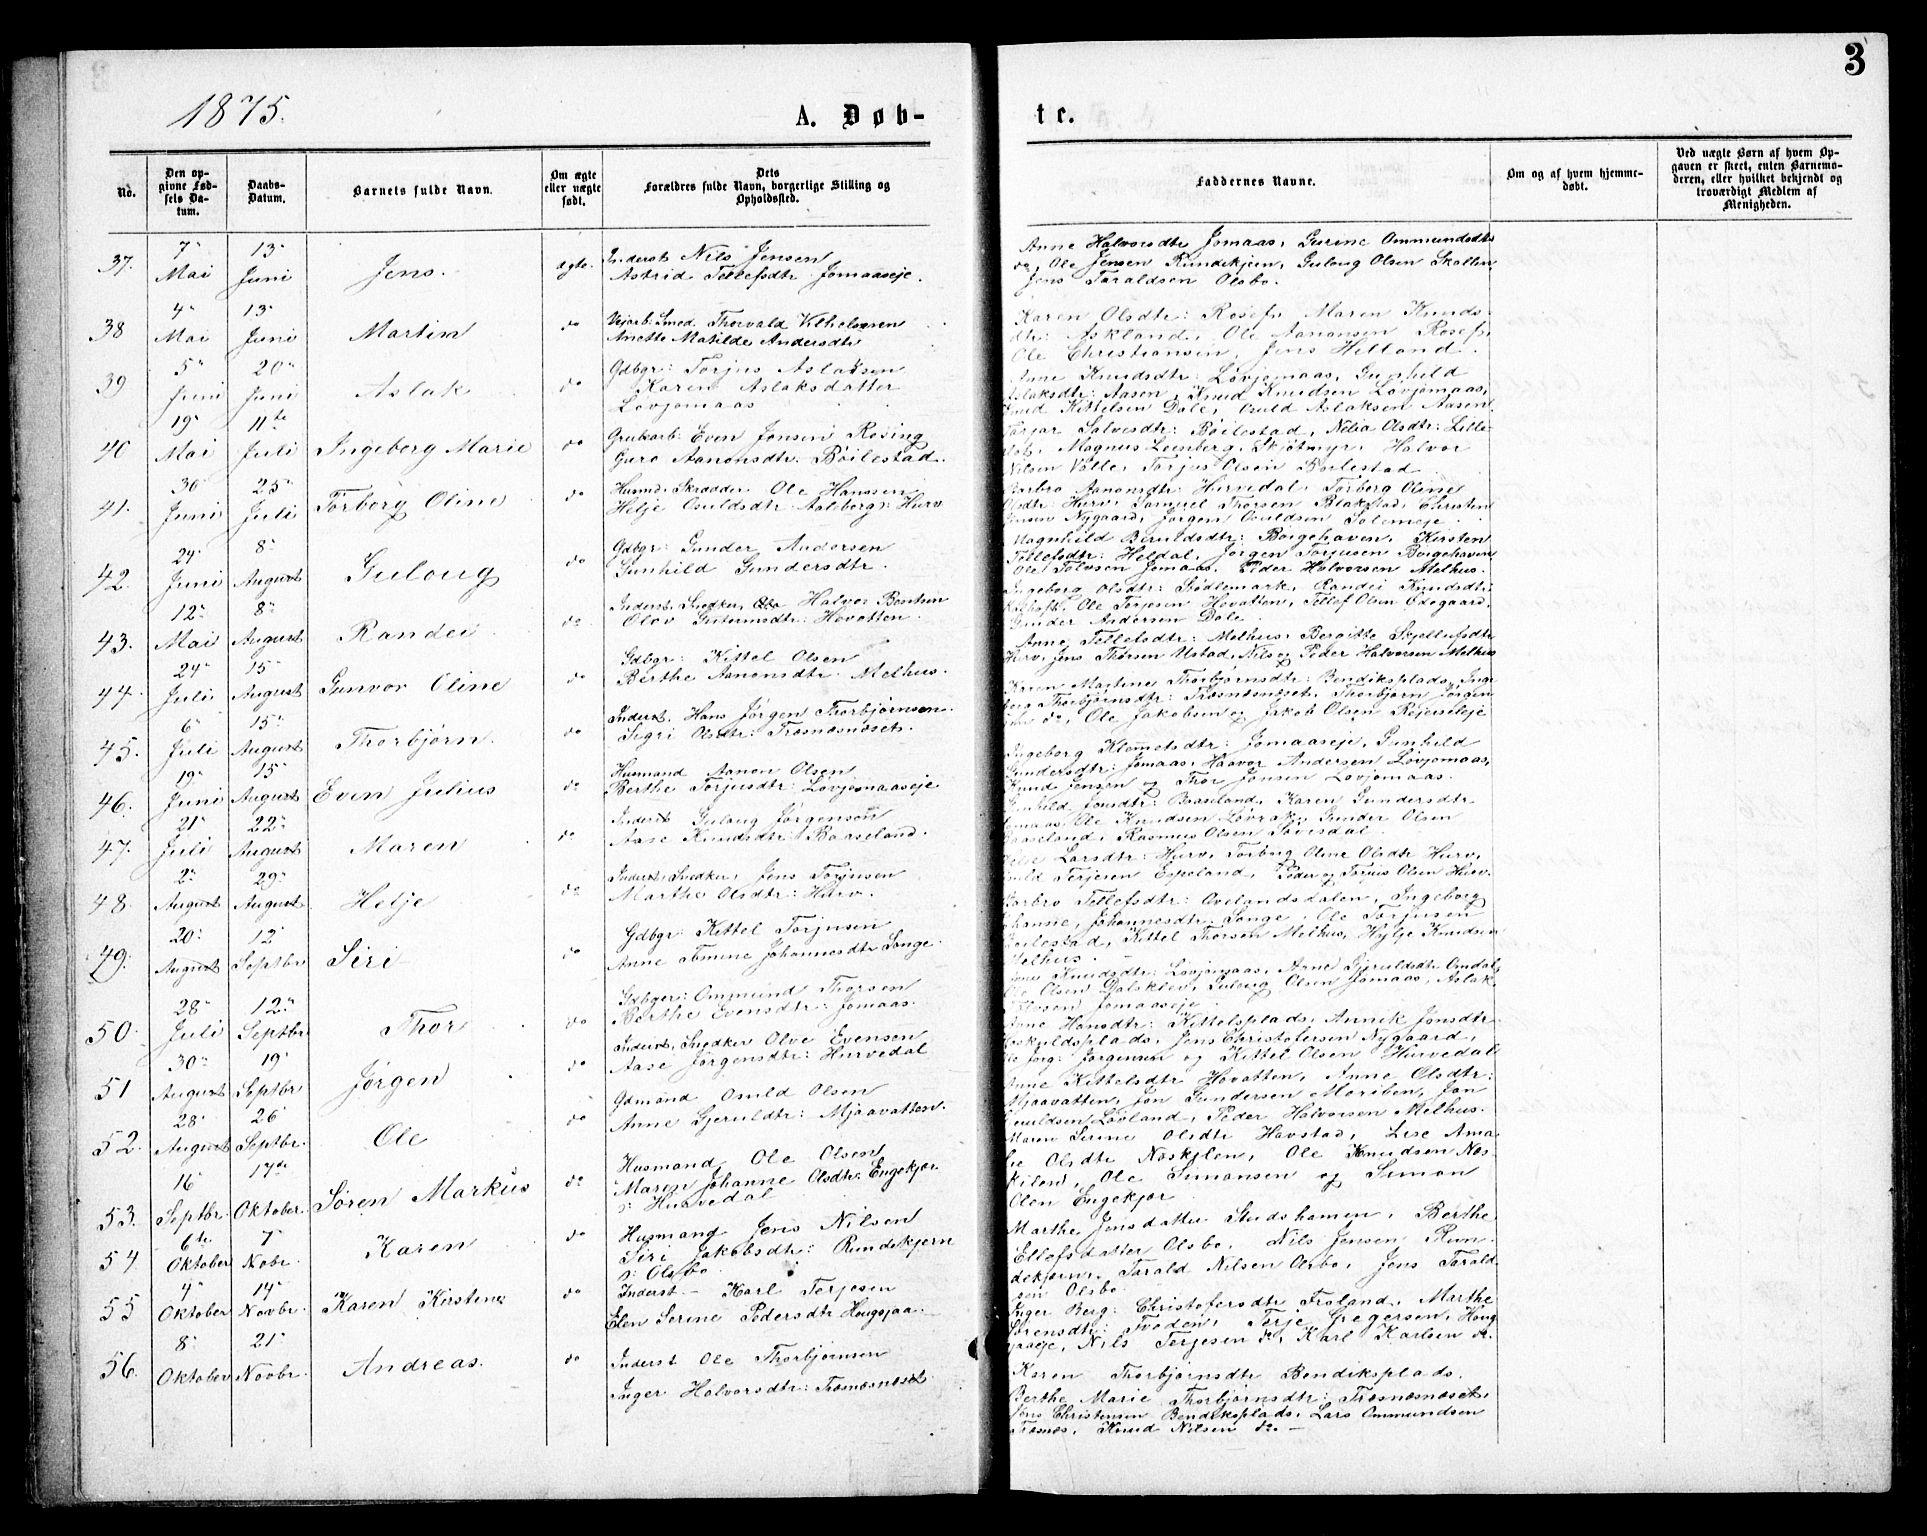 3
1875.
A. Døb-
te.
No.
Den op-
givne Fød-
sels Da-
tum.
Daabs-
Datum.
Barnets fulde Navn.
Om ægte
eller uægte
født.
Dets
Forældres fulde Navn, borgerlige Stilling og
Opholdssted.
Faddernes Navne.
Om og af hvem hjemme-
døbt.
Ved uægte Børn af hvem Op-
gaven er skeet, enten Barnemo-
deren, eller hvilket bekjendt og
troværdigt Medlem af
Menigheden.
37. 7 Mai 13 Juni Jens. ægte. Inderst Nils Jensen
Astrid Tellefsdtr Jomaaseje.
Anne Halvorsdtr Jomaas, Gurine Ommundsdtr
do, Ole Jensen Rundekjen, Guloug Olsen Skallen,
Jens Taraldsen Olsbo.
38 4 Mai 13 Juni Martin do Smed Thorvald
Anette Matilde Andersdtr
Karen Olsdtr: Rosef, Maren Knuds-
dtr: Askland, Ole Aanonsen Rosef,
Ole Christiansen, Jens Hilland.
39 5 Juni 20 Juni Aslak do Gdbgr: Torjus Aslaksen
Karen Aslaksdatter
Lovjomaas
Knudsdtr: Lovjomaas, Gunhild
Aslaksdtr: Aasen, Knud Knudsen Lovjomaas,
Knud Kittelsen Dale, Aslaksen Aasen
40 19 Mai 11te Juli Ingeborg Marie do Even Jensen Rosing
Guro Aanonsdtr. Böilestad.
Salvesdtr: Böilestad, Nelia Olsdtr: Lille-
Magnus Leenberg, Skjötmyr, Halvor
Nilsen Valle, Torjus Olsen Böilestad
41. 30 Juni 25 Juli Torborg Oline do Husmd. Skrædder Ole Hanssen
Helje Osuldsdtr Aalberg: Hurv
Barbro Aanonsdtr: Hurvedal, Torborg Oline
Olsdtr: Hurv, Samuel Thorsen Blakstad, Christen
Jensen Nygaard, Jørgen Osuldsen
42. 24 Juni 8 August Guloug do Gdbgr: Gunder Andersen
Gunhild Gundersdtr.
Magnhild Borgehaven, Kirsten
Tellefsdtr: Heldal, Jørgen Torjusen Borgehaven
Ole Jomaas, Peder Halvorsen Melhus.
43. 12 Mai 8 August Randei do Inderst, Snedker, Halvor
Olov Guttormsdtr: Hovatten.
Ingeborg Olsdtr: Stødlemark, Randei Knudsdtr:
Ole Terjesen Hovatten, Tellef Olsen Ødegaard,
Gunder Andersen Dale.
44. 24 Juli 15 August Gunvor Oline do Gdbgr: Kittel Olsen
Berthe Aanonsdtr. Melhus.
Anne Tellefsdtr: Melhus, Bergitte
Hurv, Jens Thorsen Ustad, Nils og Peder Halvorsen Melhus
45. 6 Juli 15 August Thorbjørn. do Inderst. Hans Jørgen Thorbjørnsen.
Sigri Olsdtr: Trosnosnoset.
Karen Martine Thorbjørnsdtr: Bendiksplads, Inge-
borg Thorbjørnsdtr: Trosnosnoset, Thorbjørn Jørgen-
do, Ole Jakobsen og Jakob Olsen
46. 19 Juni 15 August Even Julius do Husmand Aanon Olsen
Berthe Torjusdtr: Lovjomaaseje
Ingeborg Klemetsdtr: Jomaaseje, Gunhild
Gundersdtr: Jomaas, Haavor Andersen Lovjomaas,
Knud Jensen og Thor Jensen Lovjomaas.
47. 21 Juli 22 August Maren do Inderst Guloug Jørgensen
Aase Knudsdtr: Baaseland.
Gunhild Baaseland, Karen Gundersdtr
Jomaas, Ole Knudsen Lovrak, Gunder Olsen
Baaseland, Rasmus Olsen
48. 2 August 29 August Helje do Inderst. Snedker, Jens Torjusen
Marthe Olsdtr: Hurv.
Larsdtr: Hurv, Torborg Oline Olsdtr Hurv,
Terjesen Espeland, Peder og Torjus Olsen Hurv.
49. 20 August 12 Septbr Siri do Gdbgr: Kittel Torjusen
Anne Tomine Johannesdtr Songe.
Barbro Tellefsdtr: Ovelandsdalen, Ingeborg
Johanne, Johannesdtr: Songe, Ole Torjusen
Böilestad, Kittel Thorsen Melhus, Hylje Knudsen
Melhus.
50. 28 Juli 12 Septbr Thor do Gdbger: Ommund Thorsen
Berthe Evensdtr: Jomaas.
Knudsdtr: Lovjomaas, Anne Omdal,
Ole Olsen Dalsklev, Guloug Olsen Jomaas, Aslak
Jomaaseje
51 30 August 19 Septbr Jørgen do Inderst, Snedker Olve Evensen
Aase Jørgensdtr: Hurvedal
Anne Hansdtr: Kittelsplads, Annik Jonsdtr
Jens Christofersen Nygaard,
Jørg: Jørgensen og Kittel Olsen Hurvedal
52. 28 August 26 Septbr. Ole do Gdmand Osuld Olsen
Anne Gjeruldtr: Mjaavatten.
Anne Kittelsdtr Hovatten, Anne Olsdtr:
Mjaavatten, Jon Gundersen Moriben, Jon
Lovland, Peder Halvorsen Melhus.
53. 16 Septbr. 17de Oktober. Søren Markus do Husmand Ole Olsen
Maren Johanne Olsdtr. Engekjær
p: Hurvedal
Maren Serine Olsdtr Havstad, Lise Ama-
lie Olsdtr Næskilen, Ole Knudsen Næs-
kilen, Ole Simonsen og Simon
Olsen Engekjær
54. 6te Oktober 7 Nobr. Karen do Husmand Jens Nilsen
Siri Jakobsdtr: Rundekjern
p: Olsbo.
Marthe Jensdatter Studshamen, Berthe
Ellefsdatter Olsbo, Nils Jensen Run-
dekjern, Tarald Nilsen Olsbo, Jens Tarald-
sen Olsbo
55 4 Oktober 14 Novbr. Karen Kirstine do Inderst – Karl Terjesen
Elen Serine Pedersdtr Hougsjaa.
Inger Berg: Christofersdtr Froland, Marthe
Sørensdtr: Tveden, Terje Gregersen, Houg-
sjaaeje, Nils Terjesen do, Karl Karlsen do.
56. 8 Oktober 21 Novbr. Andreas. do Inderst Ole Thorbjørnsen
Inger Halvorsdtr: Trosnosnoset
Karen Thorbjørnsdtr Bendiksplads,
Berthe Marie Thorbjørnsdtr: Trosnosnoset,
Jens Christensen Bendiksplads, Lars Ommundsen
Trosnos, Knud Nilsen do. –